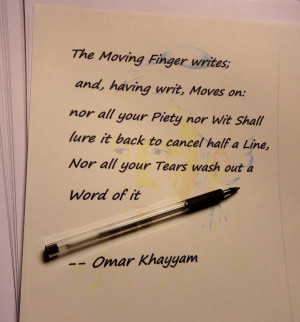 The Moving Finger writes;
and, having writ, Moves on:
nor all your Piety nor Wit Shall
lure it back to cancel half a Line,
Nor all your Tears wash out a
Word of it
-- Omar Khayyam